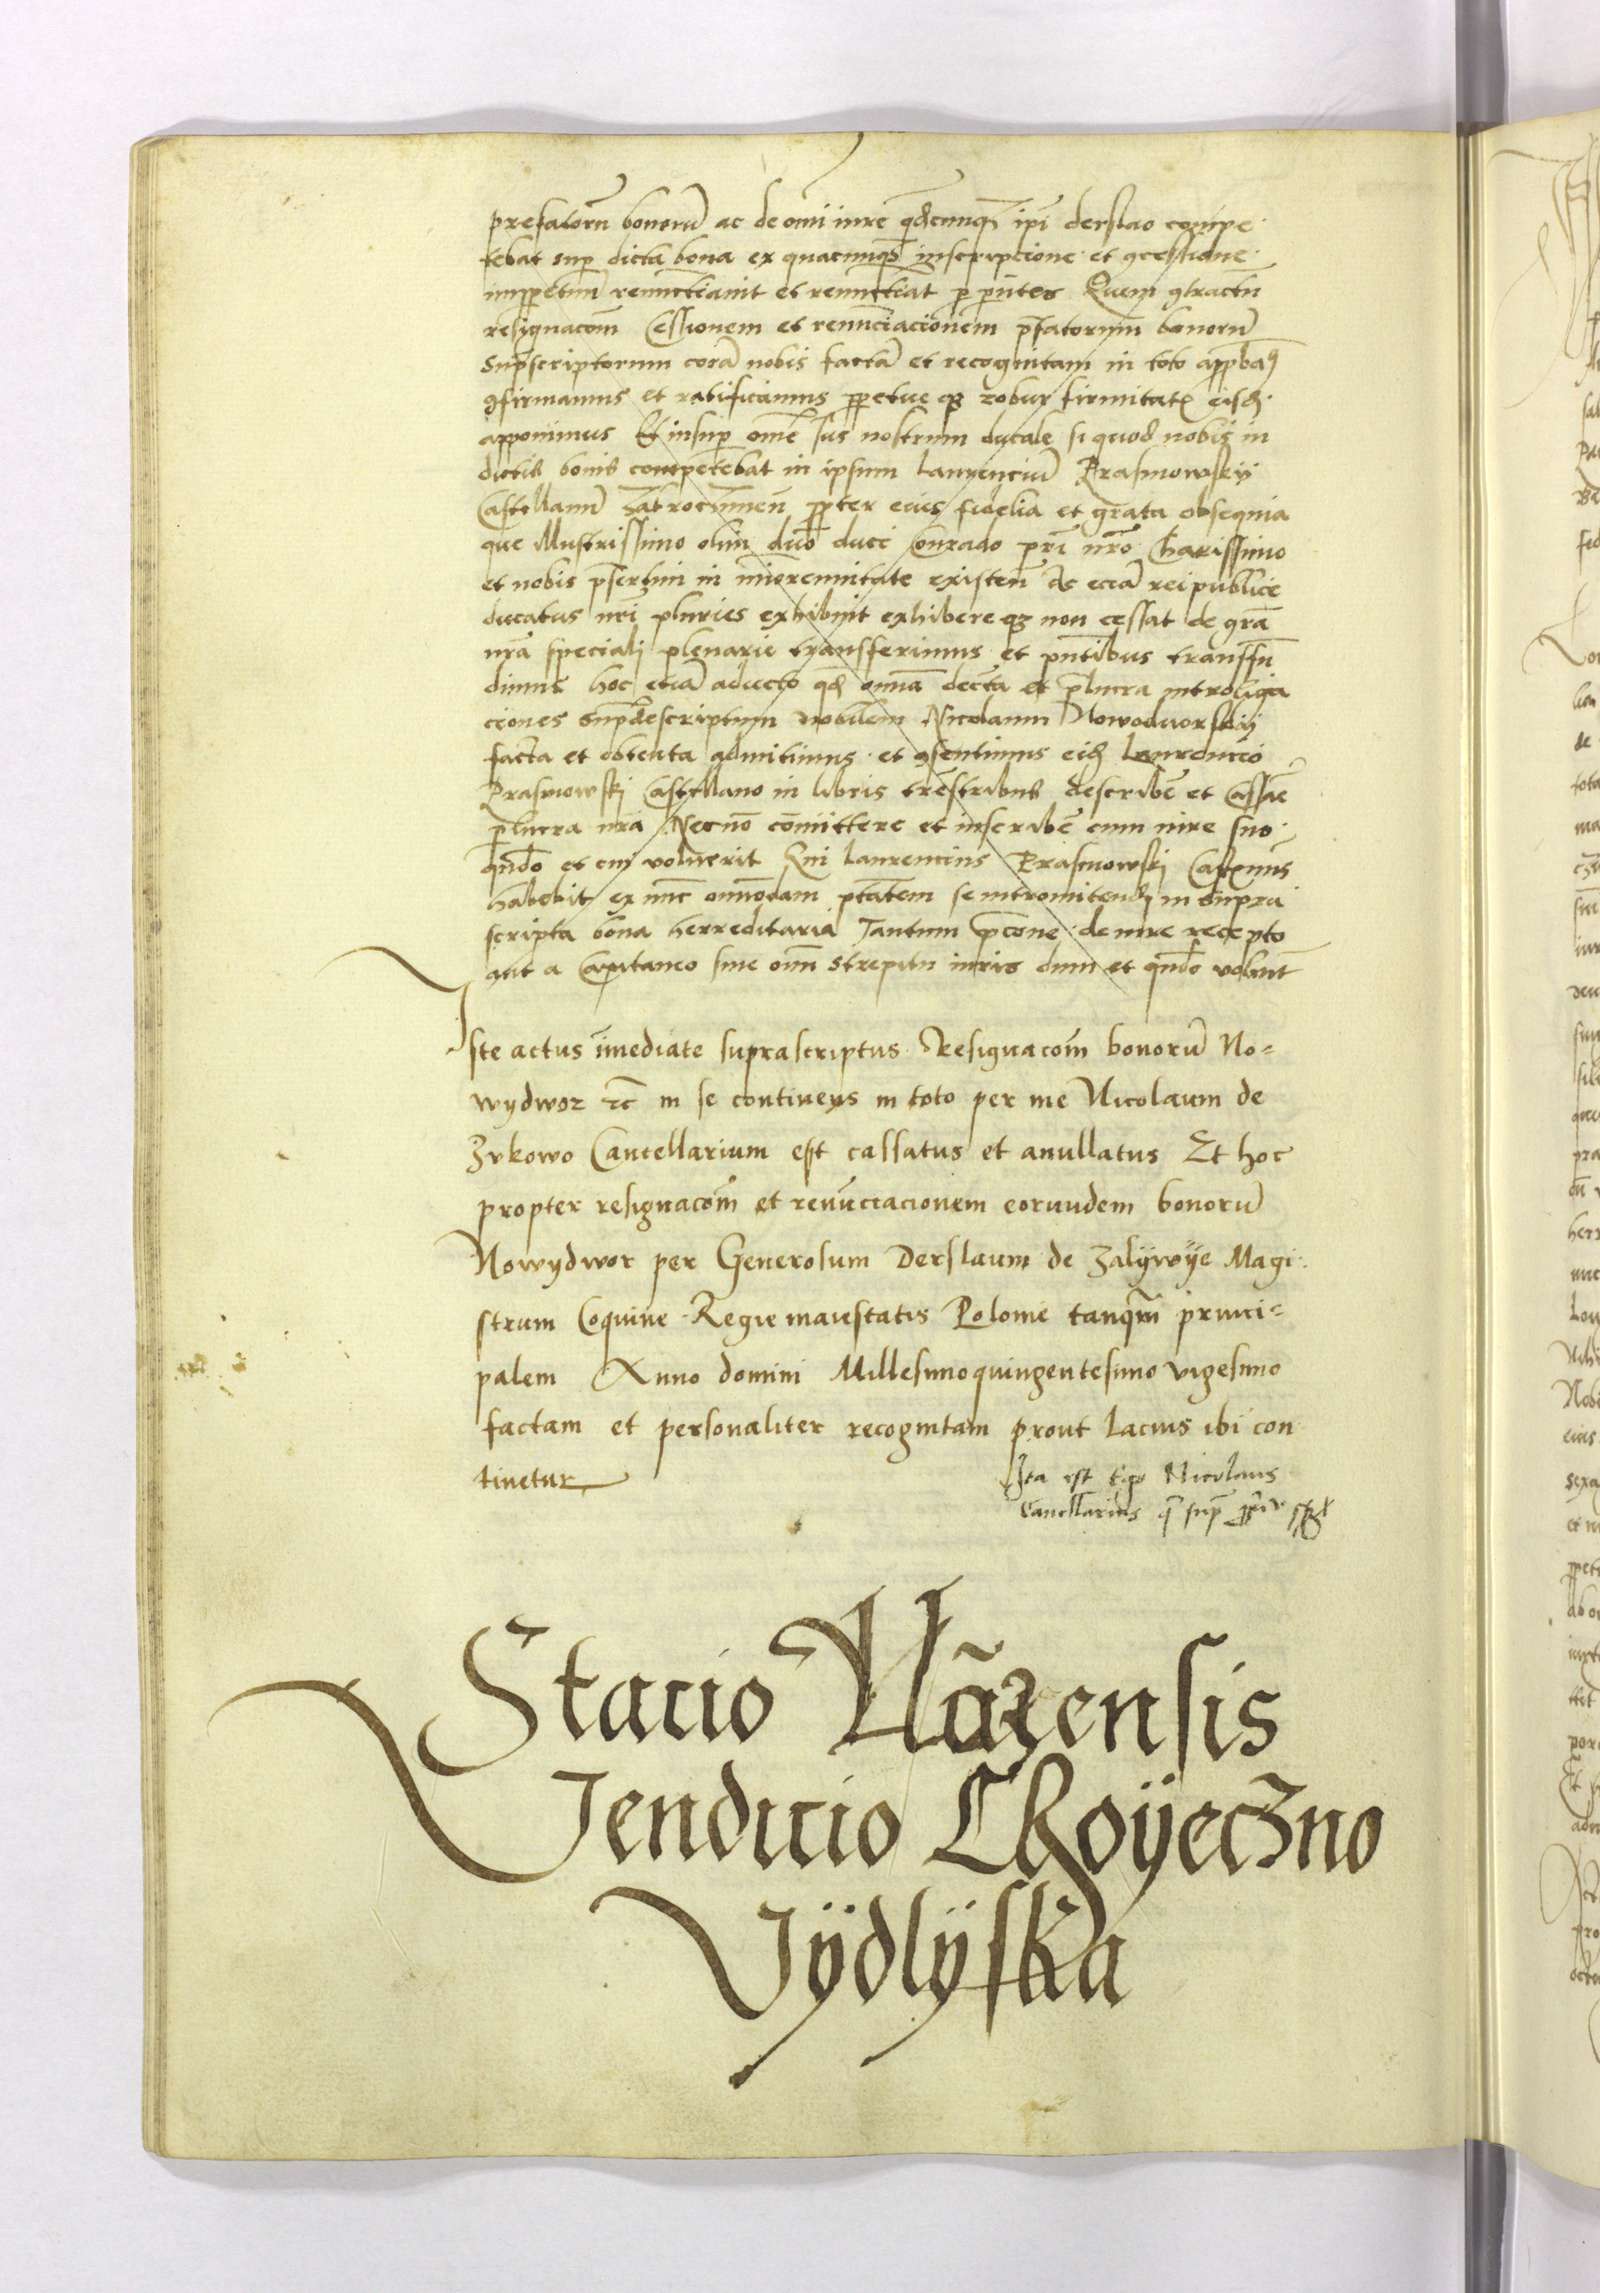 prefatorũ bonorũ ac de om̃i iure q̃dcunq̃ ip̃i derslao compe
tebat sup̱ dicta bona ex quacunq̃ inscripcione et ꝯcessione
imp̱petuũ renũctiauit et renũctiat p̱ p̃ntes Quem ꝯtractũ
resignacõm Cessionem et renũciacionem p̃fatorum bonorũ
sup̃scriptorum corã nobis factã et recognitam in toto
ꝯfirmamus et ratificamus p̱petueqꝫ robur firmitatꝭ eisd̃
apponimus Et insup̱ om̃e Ius nostrum ducale si quod nobis in
dictis bonis competebat in ipsum laurenciũ Prasmowskij
Castellanũ p̱pter eius fidelia et grata obsequia
que Illustrissimo olim dño duci Conrado p̃ri nr̃o Charissimo
et nobis p̃sertim in minorennitate existeñ Ac eciã reipublice
ducatus nr̃i pluries exhibuit exhibereqꝫ non cessat de gr̃a
nr̃a speciali plenarie transferimus et p̃ntibus transfũ
dimus hoc etiã adiecto qd̃ om̃ia decta et p̃lucra introliga
ciones sup̃descriptum nobilem Nicolaum Nowodworskij
facta et obtenta admitimus et ꝯsentimus eid̃ laurencio
Prasmowski Castellano in libris tr̃estribus describẽ et Cassãe
p̃lucra nr̃a Necnõ comittere et inscribẽ cum iure suo
qñdo et cui voluerit Qui laurencius Prasmowski
habebit ex nũc omnodam p̃tãtem se intromitend̃ in supra
scripta bona herreditaria Tantum p̃cone de iure recepto
aut a Capitaneo sine om̃i strepitu iuris dum et qñdo
Iste actus imẽdiate suprascriptus Resignacom̃ bonorũ No=
wydwor ꝛc̃ in se continens in toto per me Nicolaum de
Zukowo Cancellarium est cassatus et anullatus Et hoc
propter resignacom̃ et renũctiacionem eorundem bonorũ
Nowydwor per Generosum Derslaum de Zalijwije Magi
strum Coquine Regie maiestatis Polonie tanq̃m princi=
palem Anno domini Millesimoquingentesimo vigesimo
factam et personaliter recognitam prout lacius ibi con
tinetur
Ita est Ego Nicolaus
Cancellarius q̃ sup̃
Stacio Nãrensis
Tendicio Ckoÿeczno
Vÿdlÿska